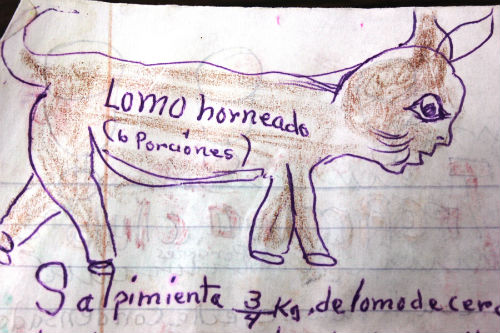 Lomo horneado
(6 Porciones)
Salpimienta 3/4 Kg. de lomo de cer